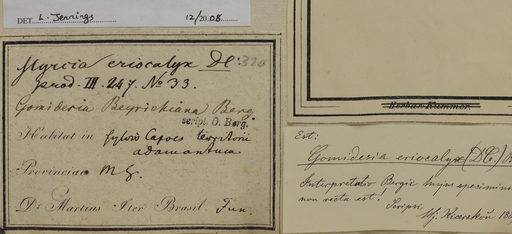 DET. L. Jennings 12/2008
Myrcia eriocalyx DC. 320
prod. III. 247. No 33.
Gomideria Beyrichiana Berg
script. O. Berg.
Habitat in sylvis Capoes territorii
adamantum
Provinciae M G.
Dr Martius Iter Brasil. Jun.
Herbar. Kummer
Est:
Gomidesia eriocalyx (DC)
Interpretatio Bergii hujus speciminis
non recta est!
Scripsi
Hj. Kiaerskou 18